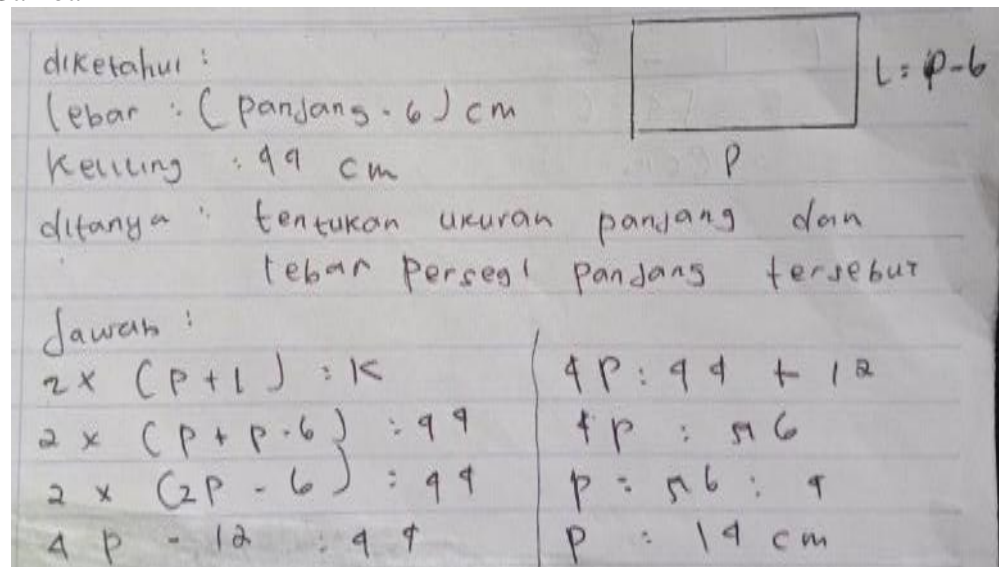 diketahui :
L = p - 6
lebar : (panjang - 6) cm
Keliling : 44 cm
p
ditanya : tentukan ukuran panjang dan
lebar persegi panjang tersebut
Jawab :
2 x (p + l) = K
2 x (p + p - 6) = 44
2 x (2p - 6) = 44
4p - 12 = 44
4p = 44 + 12
4p = 56
p = 56 : 4
p = 14 cm